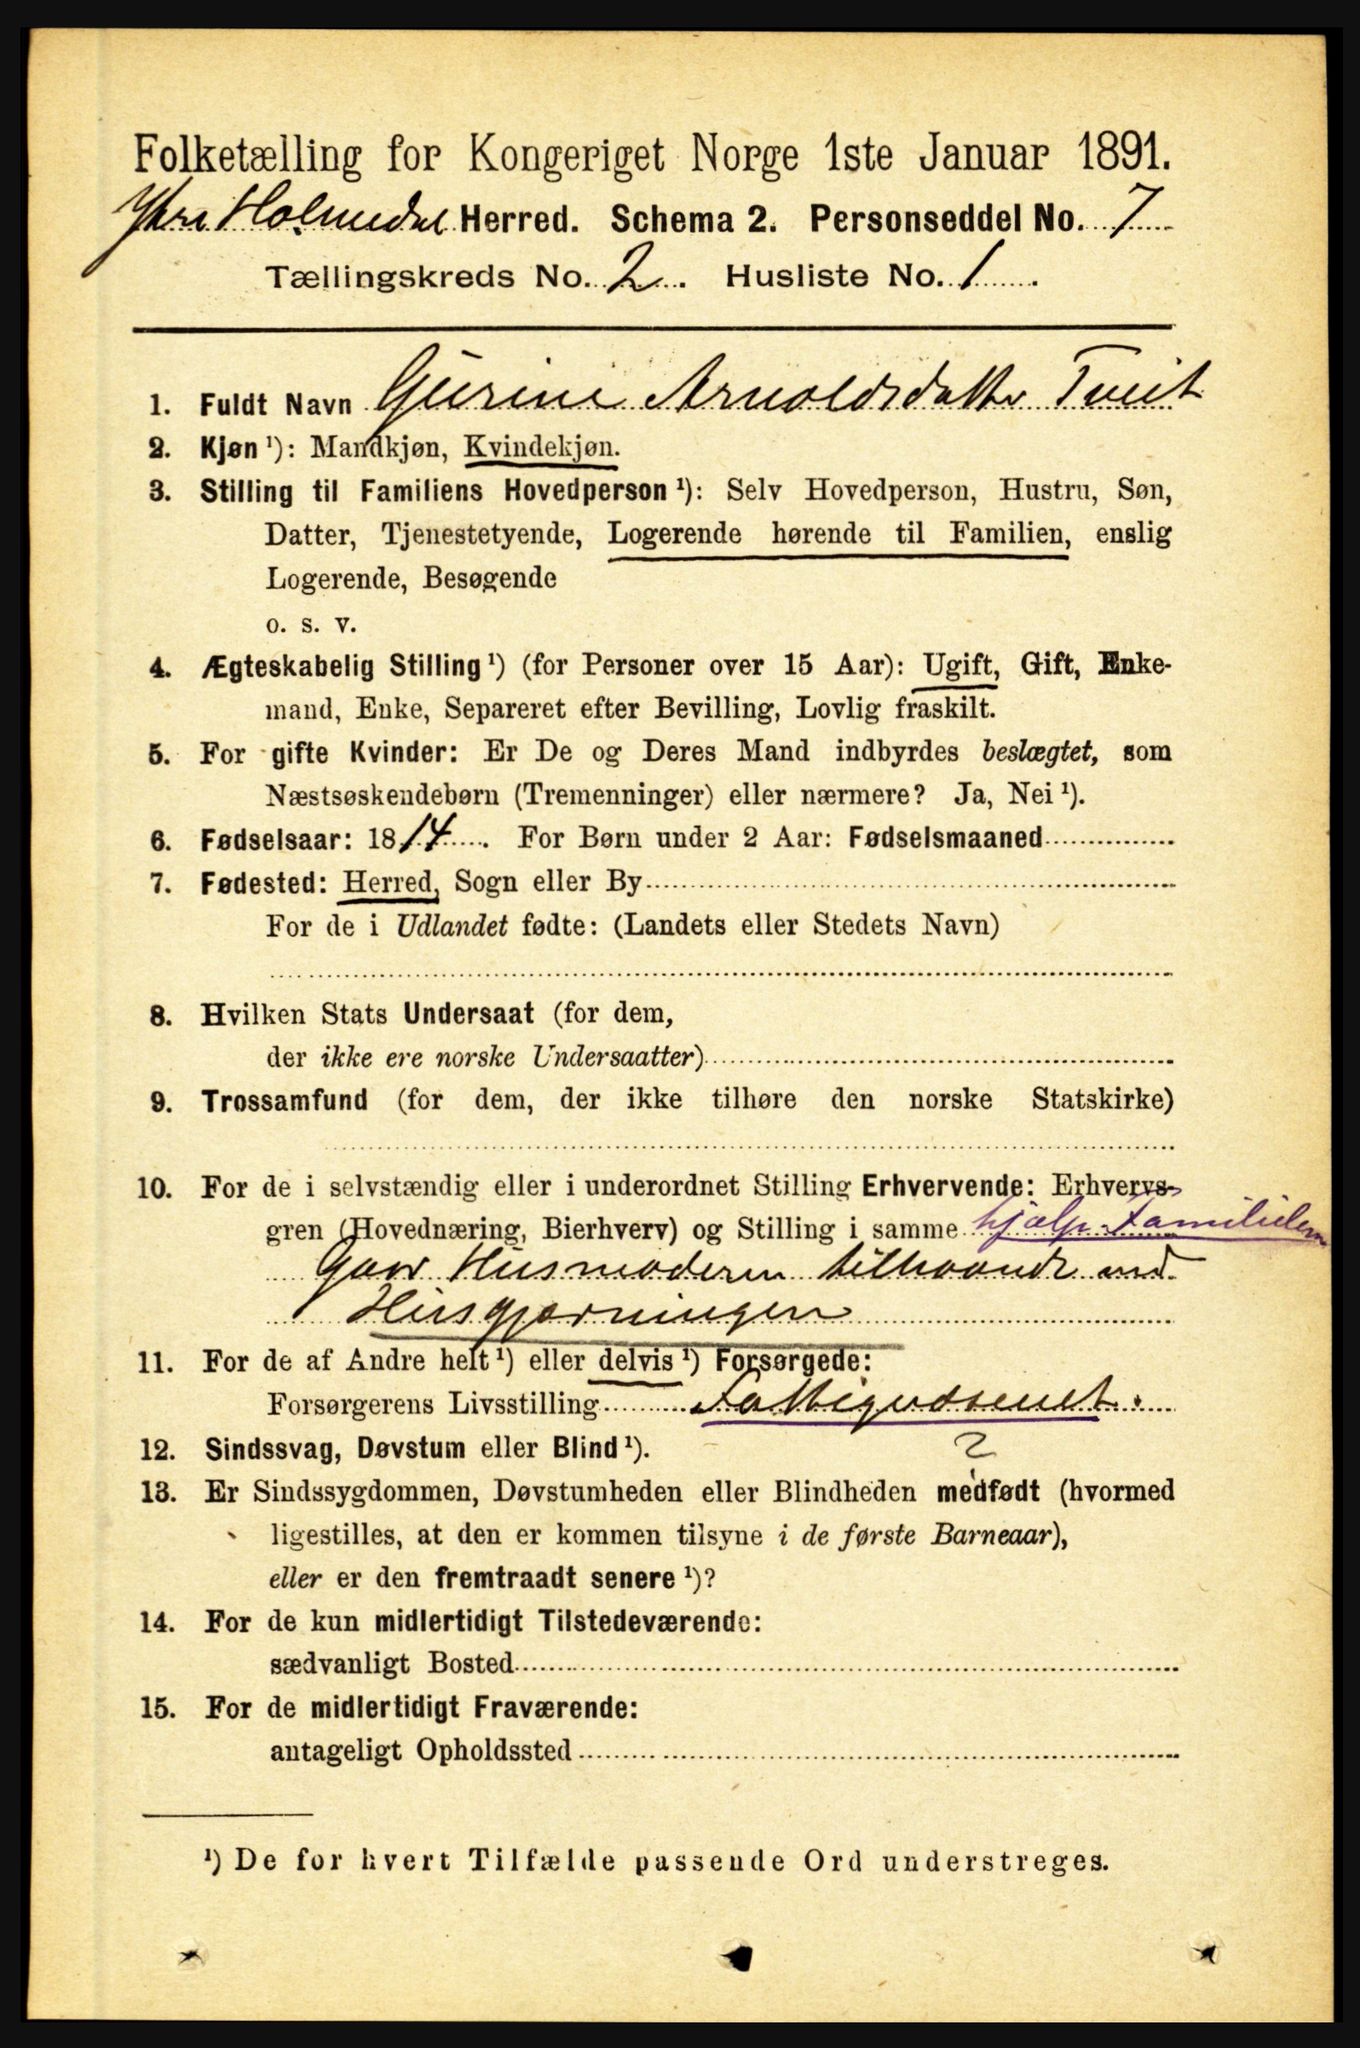 Folketælling for Kongeriget Norge 1ste Januar 1891.
Ytre Holmedal Herred. Schema 2. Personseddel No. 7
Tællingskreds No. 2. Husliste No. 1.
1. Fuldt Navn Gurine Arnoldsdatter Tveit
2. Kjøn ¹): Mandkjøn, Kvindekjøn.
3. Stilling til Familiens Hovedperson ¹): Selv Hovedperson, Hustru, Søn,
Datter, Tjenestetyende, Logerende hørende til Familien, enslig
Logerende, Besøgende
o. s. v.
4. Ægteskabelig Stilling ¹) (for Personer over 15 Aar): Ugift, Gift, Enke-
mand, Enke, Separeret efter Bevilling, Lovlig fraskilt.
5. For gifte Kvinder: Er De og Deres Mand indbyrdes beslægtet, som
Næstsøskendebørn (Tremenninger) eller nærmere? Ja, Nei ¹).
6. Fødselsaar: 1814. For Børn under 2 Aar: Fødselsmaaned
7. Fødested: Herred, Sogn eller By
For de i Udlandet fødte: (Landets eller Stedets Navn)
8. Hvilken Stats Undersaat (for dem,
der ikke ere norske Undersaatter)
9. Trossamfund (for dem, der ikke tilhøre den norske Statskirke)
10. For de i selvstændig eller i underordnet Stilling Erhvervende: Erhvervs-
gren (Hovednæring, Bierhverv) og Stilling i samme hjælp. Familielem
Gaar Husmoderen tilhaande med
Husgjørningen
11. For de af Andre helt ¹) eller delvis ¹) Forsørgede:
Forsørgerens Livsstilling Fattigvæsenet.
12. Sindssvag, Døvstum eller Blind ¹). 2
13. Er Sindssygdommen, Døvstumheden eller Blindheden medfødt (hvormed
ligestilles, at den er kommen tilsyne i de første Barneaar),
eller er den fremtraadt senere ¹)?
14. For de kun midlertidigt Tilstedeværende:
sædvanligt Bosted
15. For de midlertidigt Fraværende:
antageligt Opholdssted
¹) De for hvert Tilfælde passende Ord understreges.